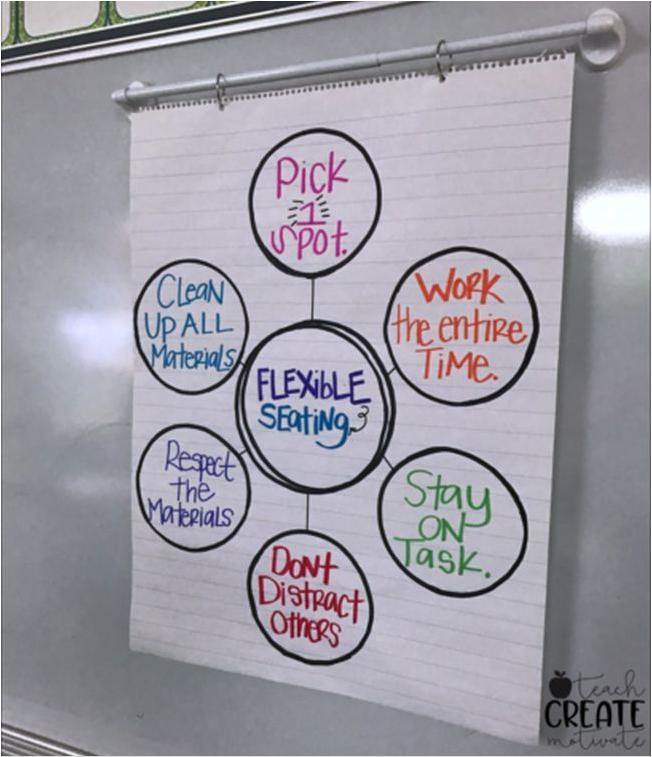 Pick
1
spot.
Work
the entire
Time.
Stay
ON
Task.
Dont
Distract
Others
Respect
the
Materials
Clean
Up ALL
Materials
FLEXiBLE
SEating
teach
CREATE
motivate